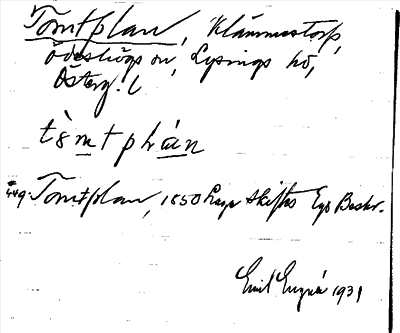 Tomtplan, Klämmestorp,
Ödeshögs sn, Lysings hd,
Österg. l
tòmtplàn
Tomtplan, 1850 Laga skiftes Ego Beskr.
Emil 1931